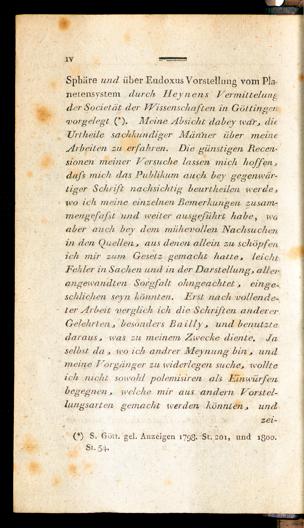 IV
Sphäre und über Eudoxus Vorstellung vom Pla-
netensystem durch Heynens Vermittelung
der Societät der Wissenschaften in Göttingen
vorgelegt (*). Meine Absicht dabey war, die
Urtheile sachkundiger Männer über meine
Arbeiten zu erfahren. Die günstigen Recen-
sionen meiner Versuche lassen mich hoffen,
daſs mich das Publikum auch bey gegenwär-
tiger Schrift nachsichtig beurtheilen werde,
wo ich meine einzelnen Bemerkungen zusam-
mengefaſst und weiter ausgeführt habe, wo
aber auch bey dem mühevollen Nachsuchen
in den Quellen, aus denen allein zu schöpfen
ich mir zum Gesetz gemacht hatte, leicht
Fehler in Sachen und in der Darstellung, aller
angewandten Sorgfalt ohngeachtet, einge-
schlichen seyn könnten. Erst nach vollende-
ter Arbeit verglich ich die Schriften anderer
Gelehrten, besonders Bailly, und benutzte
daraus, was zu meinem Zwecke diente. Ja
selbst da, wo ich andrer Meynung bin, und
meine Vorgänger zu widerlegen suche, wollte
ich nicht sowohl polemisiren als Einwürfen
begegnen, welche mir aus andern Vorstel-
lungsarten gemacht werden könnten, und
zei-
(*) S. Gött. gel. Anzeigen 1798. St. 201, und 1800.
St. 54.